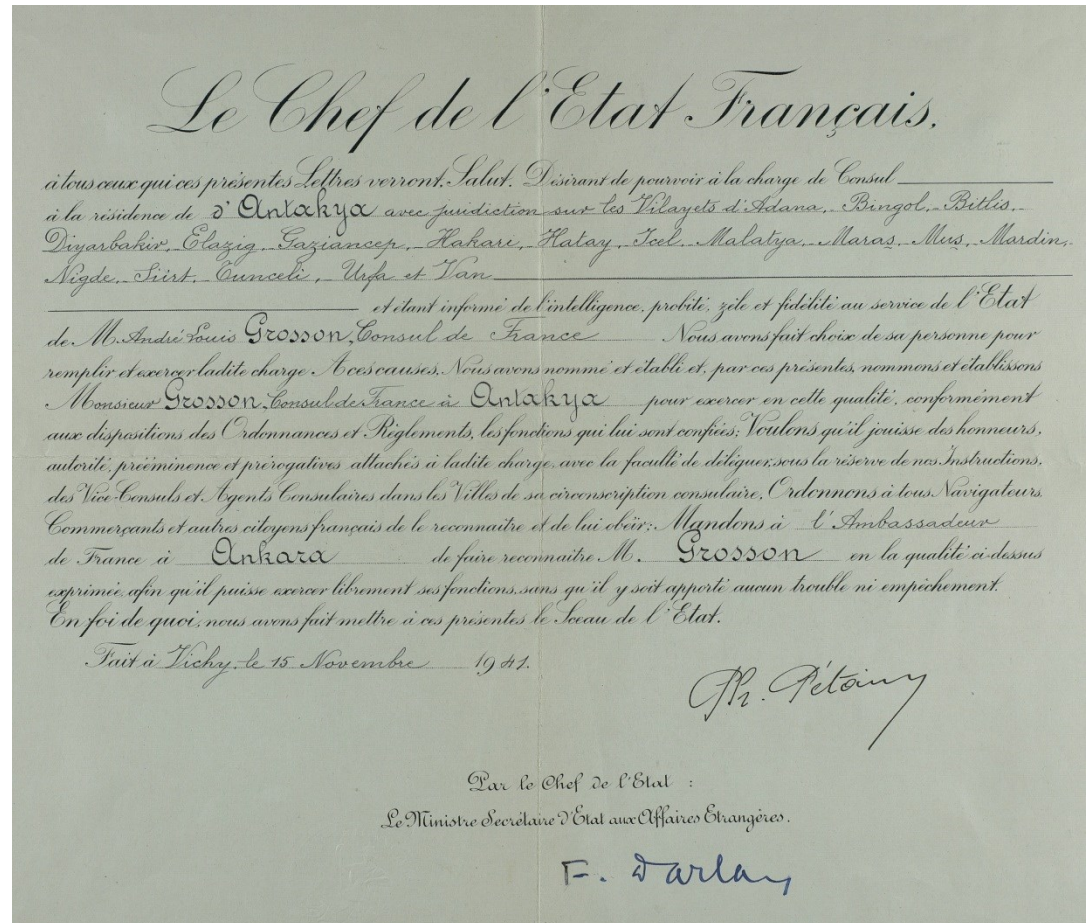 Le Chef de l'Etat Français.
à tous ceux qui ces présentes Lettres verront, Salut. Désirant de pourvoir à la charge de Consul
à la résidence de d'Antakya avec juridiction sur les Vilayets d'Adana, Bingol, Bitlis,
Diyarbakir, Elazig, Gaziancep, Hakari, Hatay, Icel, Malatya, Maras, Mus, Mardin,
Nigde, Siirt, Tunceli, Urfa et Van
et étant informé de l'intelligence, probité, zèle et fidélité au service de l'Etat
de M. André Louis Grosson, Consul de France Nous avons fait choix de sa personne pour
remplir et exercer ladite charge A ces causes, Nous avons nommé et établi et, par ces présentes, nommons et établissons
Monsieur Grosson, Consul de France à Antakya pour exercer en cette qualité, conformément
aux dispositions des Ordonnances et Règlements, les fonctions qui lui sont confiées; Voulons qu'il jouisse des honneurs,
autorité, prééminence et prérogatives attachés à ladite charge, avec la faculté de déléguer, sous la réserve de nos Instructions,
des Vice-Consuls et Agents Consulaires dans les Villes de sa circonscription consulaire. Ordonnons à tous Navigateurs
Commerçants et autres citoyens français de le reconnaitre et de lui obéir; Mandons à l'Ambassadeur
de France à Ankara de faire reconnaitre M. Grosson en la qualité ci-dessus
exprimée, afin qu'il puisse exercer librement ses fonctions, sans qu'il y soit apporté aucun trouble ni empêchement.
En foi de quoi, nous avons fait mettre à ces présentes le Sceau de l'Etat.
Fait à Vichy, le 15 Novembre 1941.
Ph. Pétain
Par le Chef de l'Etat :
Le Ministre Secrétaire d'Etat aux Affaires Etrangères.
F. Darlan